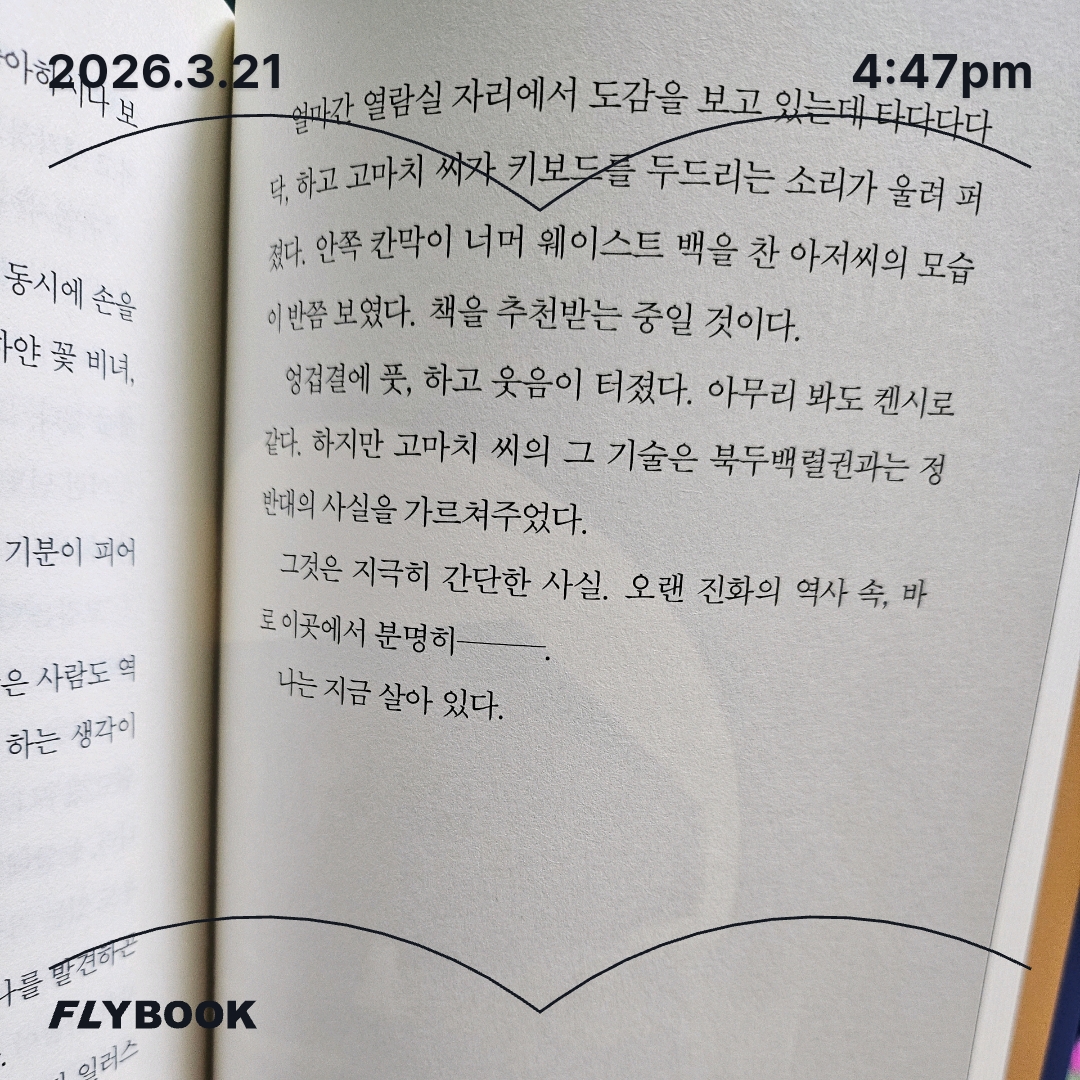 2026.3.21
4:47pm
보
동시에 손을
얀 꽃 비녀,
기분이 피어
은 사람도 역
하는 생각이
를 발견하곤
일러스
얼마간 열람실 자리에서 도감을 보고 있는데 타다다다
닥, 하고 고마치 씨가 키보드를 두드리는 소리가 울려 퍼
졌다. 안쪽 칸막이 너머 웨이스트 백을 찬 아저씨의 모습
이 반쯤 보였다. 책을 추천받는 중일 것이다.
엉겁결에 풋, 하고 웃음이 터졌다. 아무리 봐도 켄시로
같다. 하지만 고마치 씨의 그 기술은 북두백렬권과는 정
반대의 사실을 가르쳐주었다.
그것은 지극히 간단한 사실. 오랜 진화의 역사 속, 바
로 이곳에서 분명히───.
나는 지금 살아 있다.
FLYBOOK